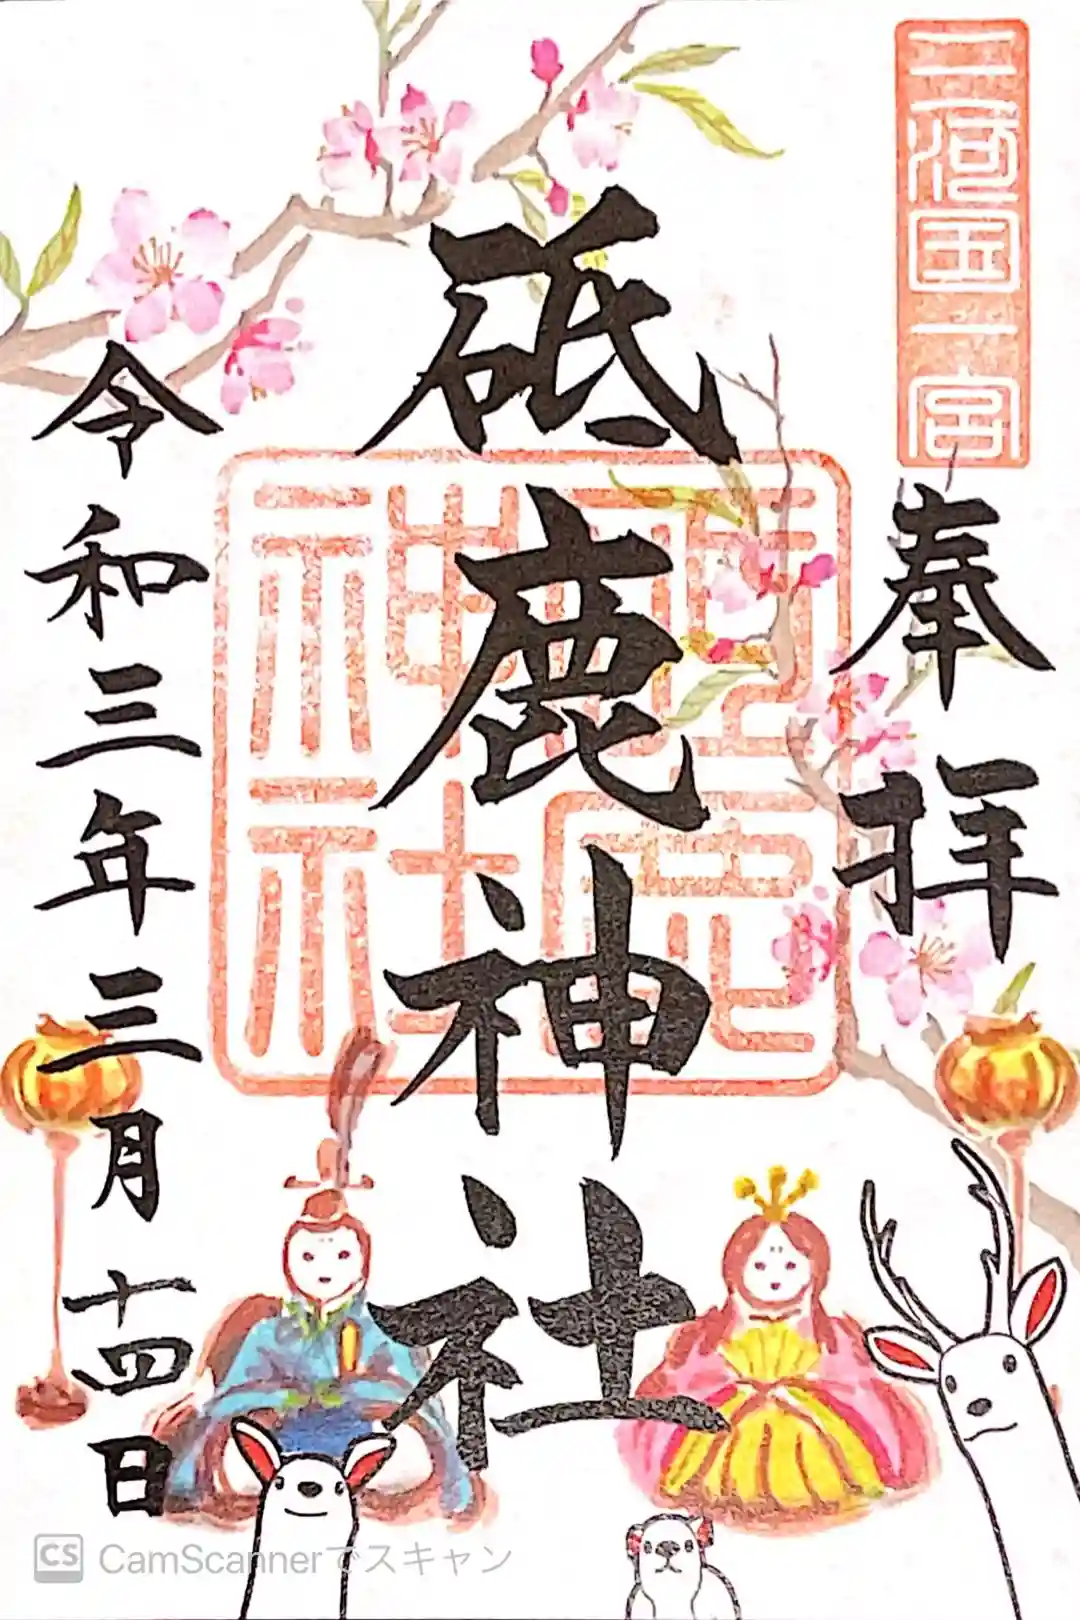 三河国一宮
奉拝
砥鹿神社
令和三年三月十四日
CS CamScannerでスキャン